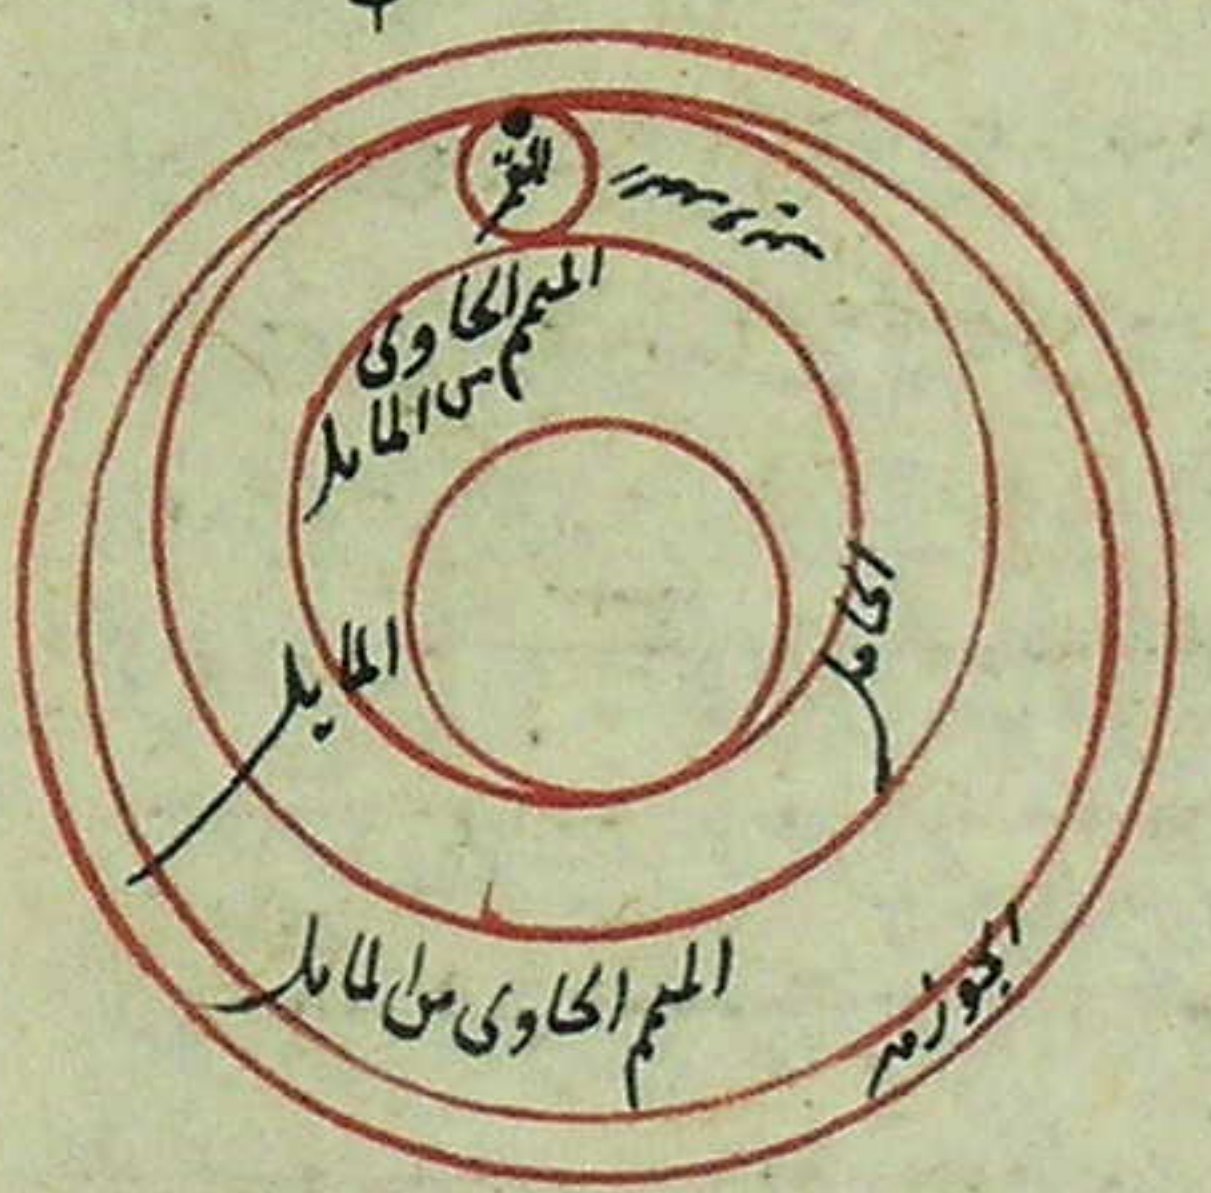 القمر
المتمم الحاوى
من المايل
الحامل
المايل
المتمم الحاوى من المايل
الجوزهر